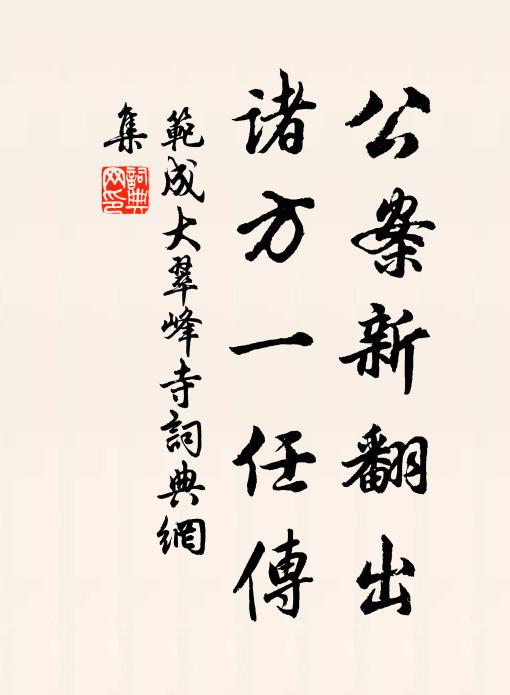 公案新翻出
诸方一任傳
範成大翠峰寺詞典網
集
詞典
网印